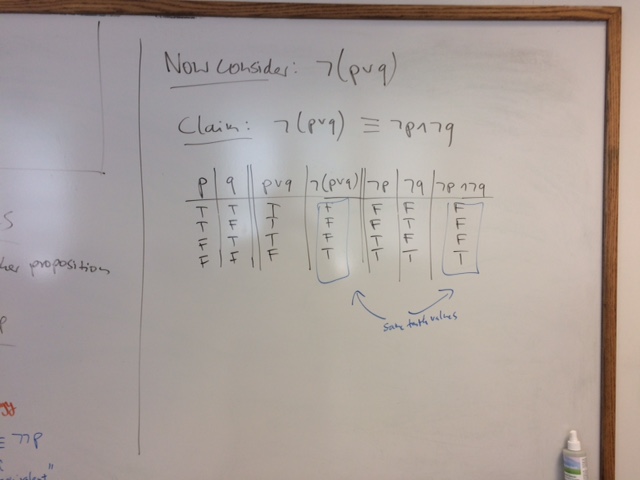 Now consider: ¬(p∨q)
Claim: ¬(p∨q) ≡ ¬p∧¬q
p q p∨q ¬(p∨q) ¬p ¬q ¬p∧¬q
T T T F F F F
T F T F F T F
F T T F T F F
F F F T T T T
same truth values
S
her proposition
p
gy
≡ ¬¬p
"